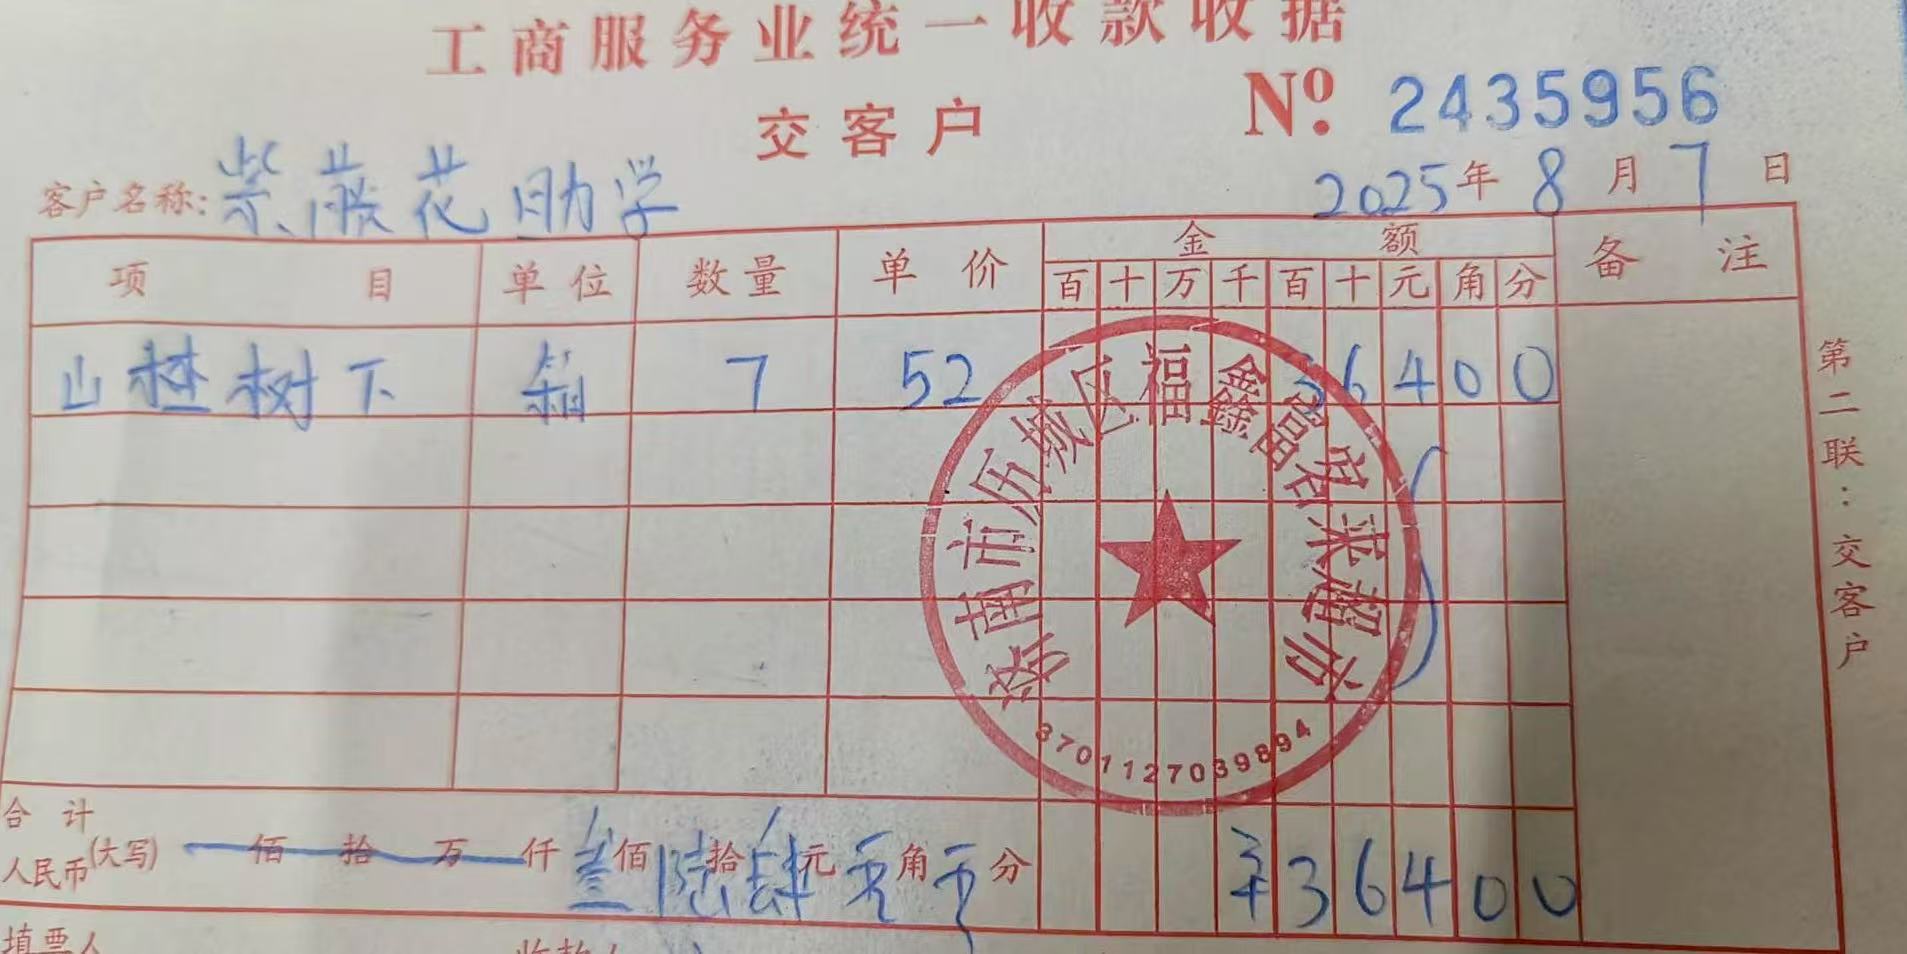 工商服务业统一收款收据
交客户
№ 2435956
客户名称: 紫薇花助学
2025年8月7日
项目 单位 数量 单价 金额 备注
百十万千百十元角分
山楂树下 箱 7 52 36400
济南市历城区福鑫磊君来超市
3701127039894
合计
人民币(大写) 佰 拾 万 仟 叁佰陆拾肆元零角零分 ¥36400
填票人 收款人
第二联:交客户